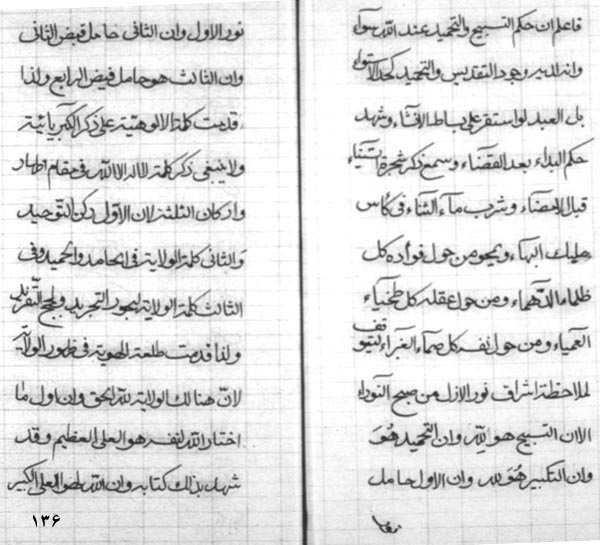 فاعلم ان حكم التسبيح والتحميد عند الله سواء
وانه لدير وجود التقديس والتحميد كحد الاستواء
بل العبد لو استقر على بساط الانشاء وشهد
حكم البداء بعد القضاء وسمع ذكر شجرة السيناء
قبال الامضاء وشرب ماء الثناء فى كأس
البهاء ويمحو من حول فواده كل
ظلماء الدهماء ومن حول عقله كل
العمياء ومن حول نفسه كل صماء الغبراء ليتوقف
لملاحظة اشراق نور الازل من صبح النوراء
الان التسبيح هو لله وان التحميد هو
وان التكبير هو لله وان الاول حامل
نور الاول وان الثانى حامل قبض الثانى
وان الثالث هو حامل فيض الرابع ولذا
قدمت كلمة الالوهية على ذكر الكبريائية
ولا ينبغى ذكر كلمة لا اله الا الله فى مقام اظهار
واركان الثلثة لان الاول ركن التوحيد
والثانى كلمة الولاية فى المحامد والحميد وفى
الثالث كلمة الولاية لبحور التجريد ولجج التفريد
ولذا قدمت طلعة الهوية فى ظهور الولاية
لان هنالك الولاية لله الحق وان اول ما
اختار الله لنفسه هو العلى العظيم وقد
شهد بذلك كتابه وان الله لهو العلى الكبير
١٣۶